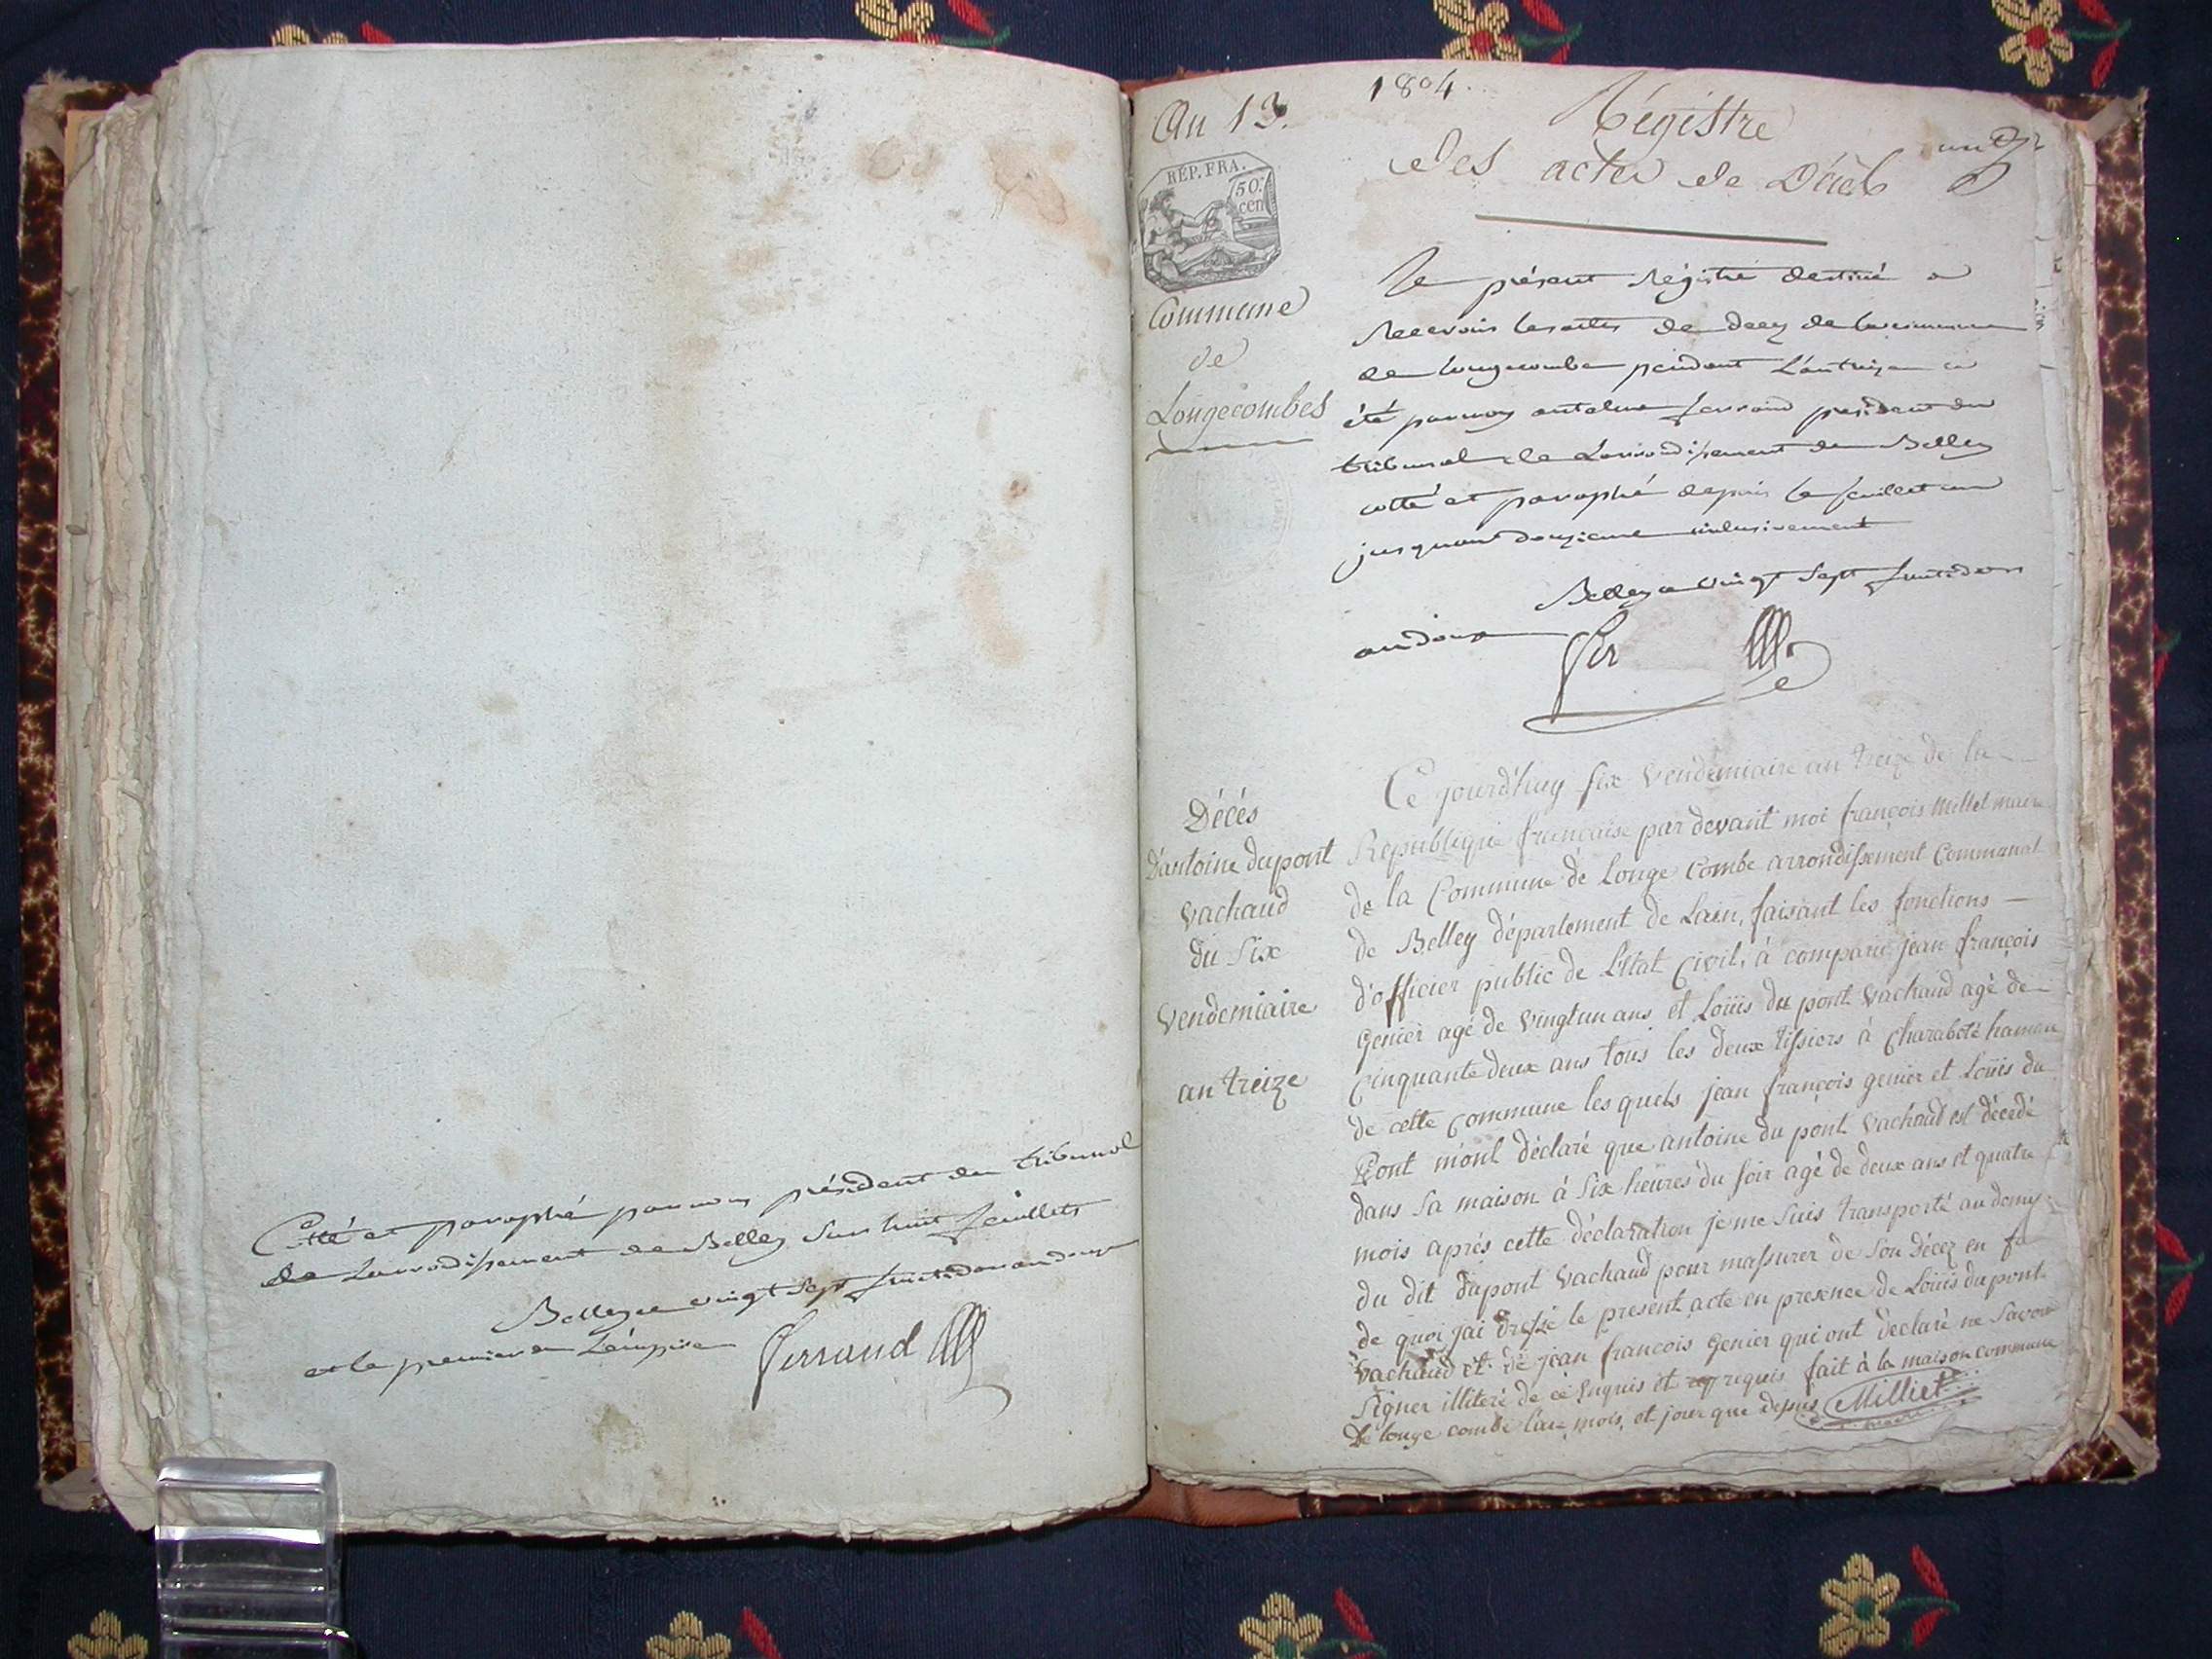 Cotté et paraphé par nous président du tribunal
de Larrondissement de Belley sur huit feuillets
Belley ce vingt sept fructidor an douze
et le premier de L'émpire Ferrand
An 13.
1804.
Régistre
des actes de Décés
un
RÉP. FRA.
50.
cen
Commune
de
Longecombes
Le présent Régistre destiné a
Recevoir les actes de decez de la commune
de longecombe pendant L'an treize a
été par nous antelme ferrand president du
tribunal de Larrondissement de Belley
cotté et paraphé depuis le feuillet un
jusquau douzieme inclusivement
Belley ce vingt sept fructidor
an douze
Fer
Décés
D'antoine dupont
vachaud
du Six
vendemiaire
an treize
Ce jourd'huy six vendemiaire an treize de la
Republique française par devant moi françois Milliet maire
de la Commune de Longe Combe arrondissement Communal
de Belley département de Lain, faisant les fonctions
d'officier public de L'état Civil, à comparu jean françois
Genier agé de vingt un ans et Louïs du pont vachaud agé de
Cinquante deux ans tous les deux tissiers à Charabote hameau
de cette commune les quels jean françois genier et Louïs du
Pont m'ont déclaré que antoine du pont vachaud est décedé
dans sa maison à six heures du soir agé de deux ans et quatre
mois après cette déclaration je me suis transporté au domi
du dit dupont vachaud pour massurer de son décez en fo
de quoi jai dressé le present acte en presence de Louis du pont
vachaud et de jean francois Genier qui ont déclaré ne savoir
signer illiteré de ce enquis et requis fait à la maison commune
de longe combe lan, mois, et jour que dessus Milliet